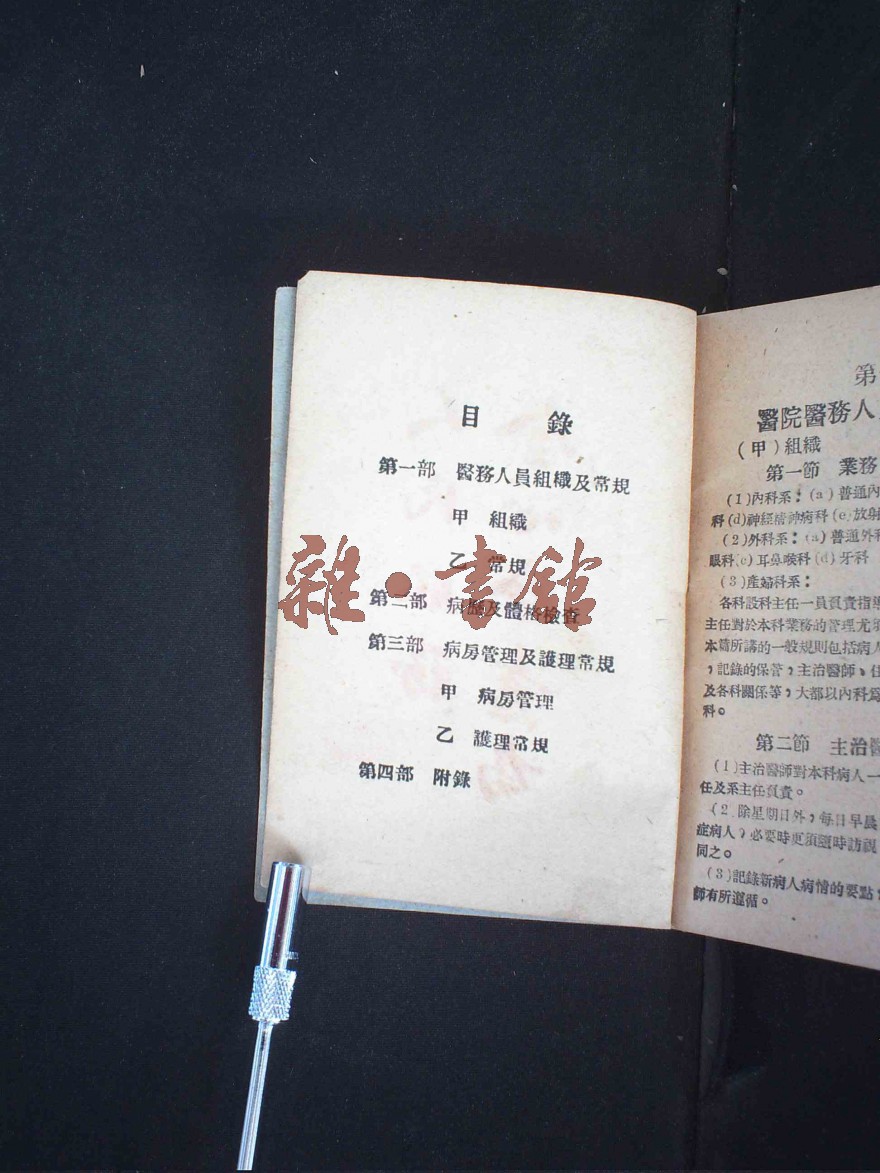 目 錄
第一部 醫務人員組織及常規
甲 組織
乙 常規
第二部 病歷及體格檢查
第三部 病房管理及護理常規
甲 病房管理
乙 護理常規
第四部 附錄
雜·書館
第
醫院醫務人
(甲)組織
第一節 業務
(1)內科系:(a)普通內
科(d)神經精神病科(e)放射
(2)外科系:(a)普通外科
眼科(c)耳鼻喉科(d)牙科
(3)產婦科系:
各科設科主任一員負責指導
主任對於本科業務的管理尤須
本篇所講的一般規則包括病人
,記錄的保管,主治醫師、住
及各科關係等,大都以內科爲
科。
第二節 主治醫
(1)主治醫師對本科病人一
任及系主任負責。
(2 除星期日外,每日早晨
症病人,必要時更須隨時訪視
同之。
(3)記錄新病人病情的要點
師有所遵循。